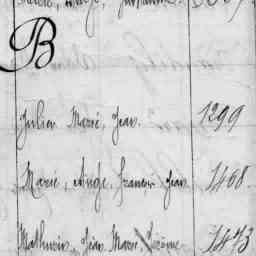 B
Julien Marie, Jean. 1299
Marie, Ange, Francois Jean 1468
Mathurin, Jean Marie, 1473